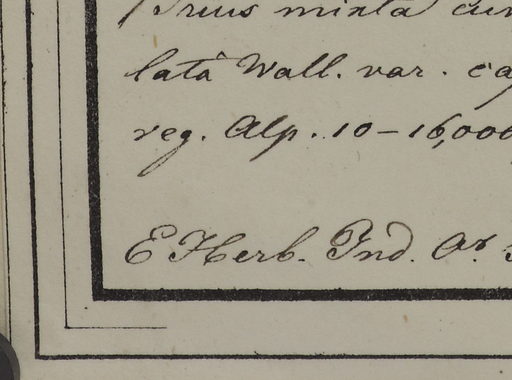 Pinus mixta cum
lata Wall. var. ca
reg. Alp. 10–16,000
E Herb. Ind. Or.